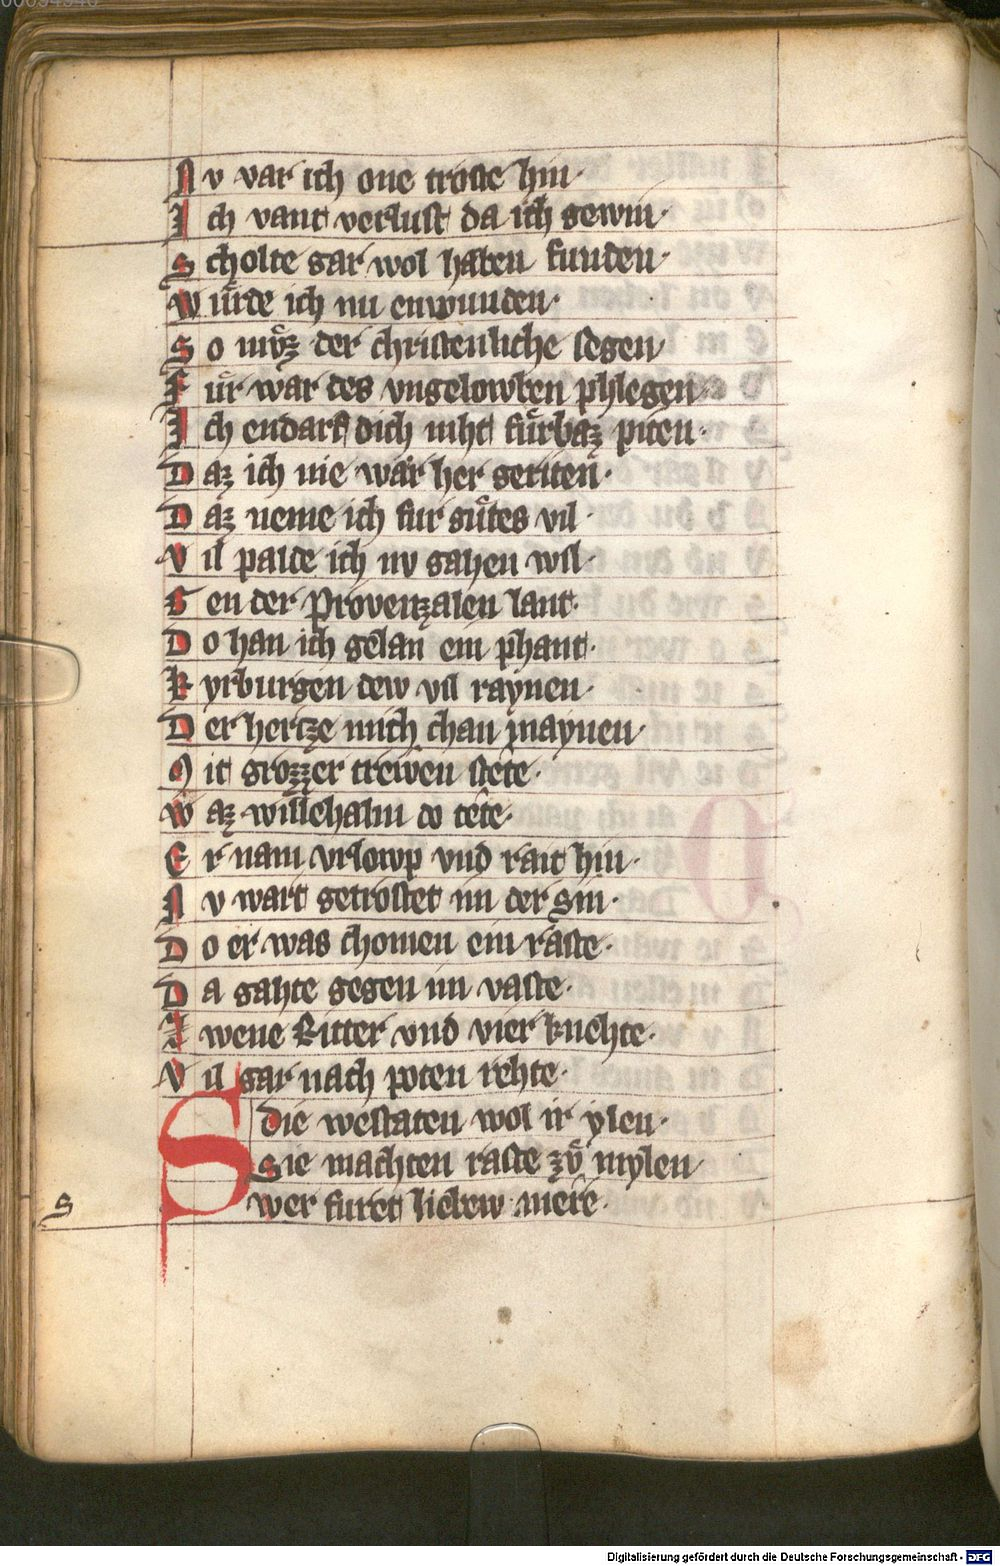 N v var ich one troste hin·
I ch vant verlust da ich gewin·
S cholte gar wol haben funden·
W ůrde ich nu enwunden·
S o můz der christenliche segen
F ůr war des vngelowben phlegen·
I ch endarf dich niht fůrbaz piten·
D az ich nie wär her geriten·
D az neme ich fur gůtes vil·
V il palde ich nv gahen wil·
G en der Provenzalen lant·
D o han ich gelan ein phant·
K yrburgen dew vil raynen·
D er hertze mich chan maynen·
M it grozzer trewen stete·
W az willehalm do tete·
E r nam vrlowp vnd rait hin·
N v wart getrostet im der sin·
D o er was chomen ein raste·
D a gahte gegen im vaste·
Z wene Ritter vnd vier knehte·
V il gar nach poten rehte·
S die westaten wol ir ylen·
Sie machten raste zů mylen
wer furet liebew mere·
s
Digitalisierung gefördert durch die Deutsche Forschungsgemeinschaft - DFG